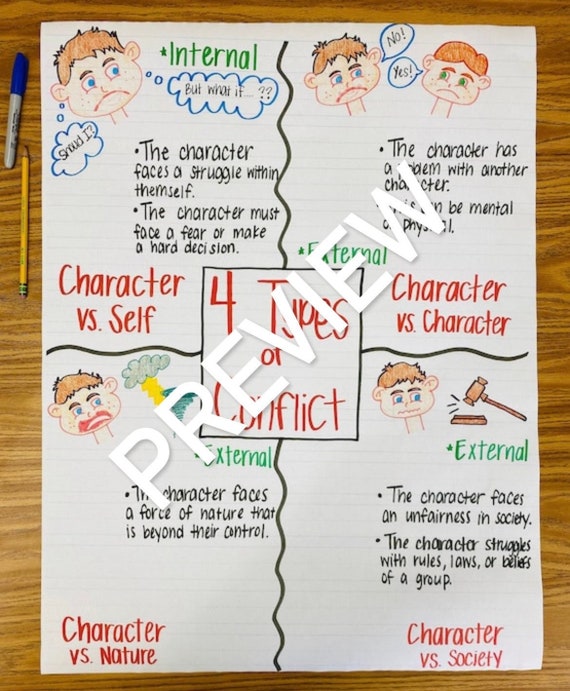 *Internal
But what if... ??
Should I?
• The character
faces a struggle within
themself.
• The character must
face a fear or make
a hard decision.
Character
vs. Self
No!
Yes!
• The character has
a problem with another
character.
can be mental
or physical.
*External
Character
vs. Character
4 Types
of
Conflict
*External
• The character faces
a force of nature that
is beyond their control.
Character
vs. Nature
*External
• The character faces
an unfairness in society.
• The character struggles
with rules, laws, or beliefs
of a group.
Character
vs. Society
PREVIEW